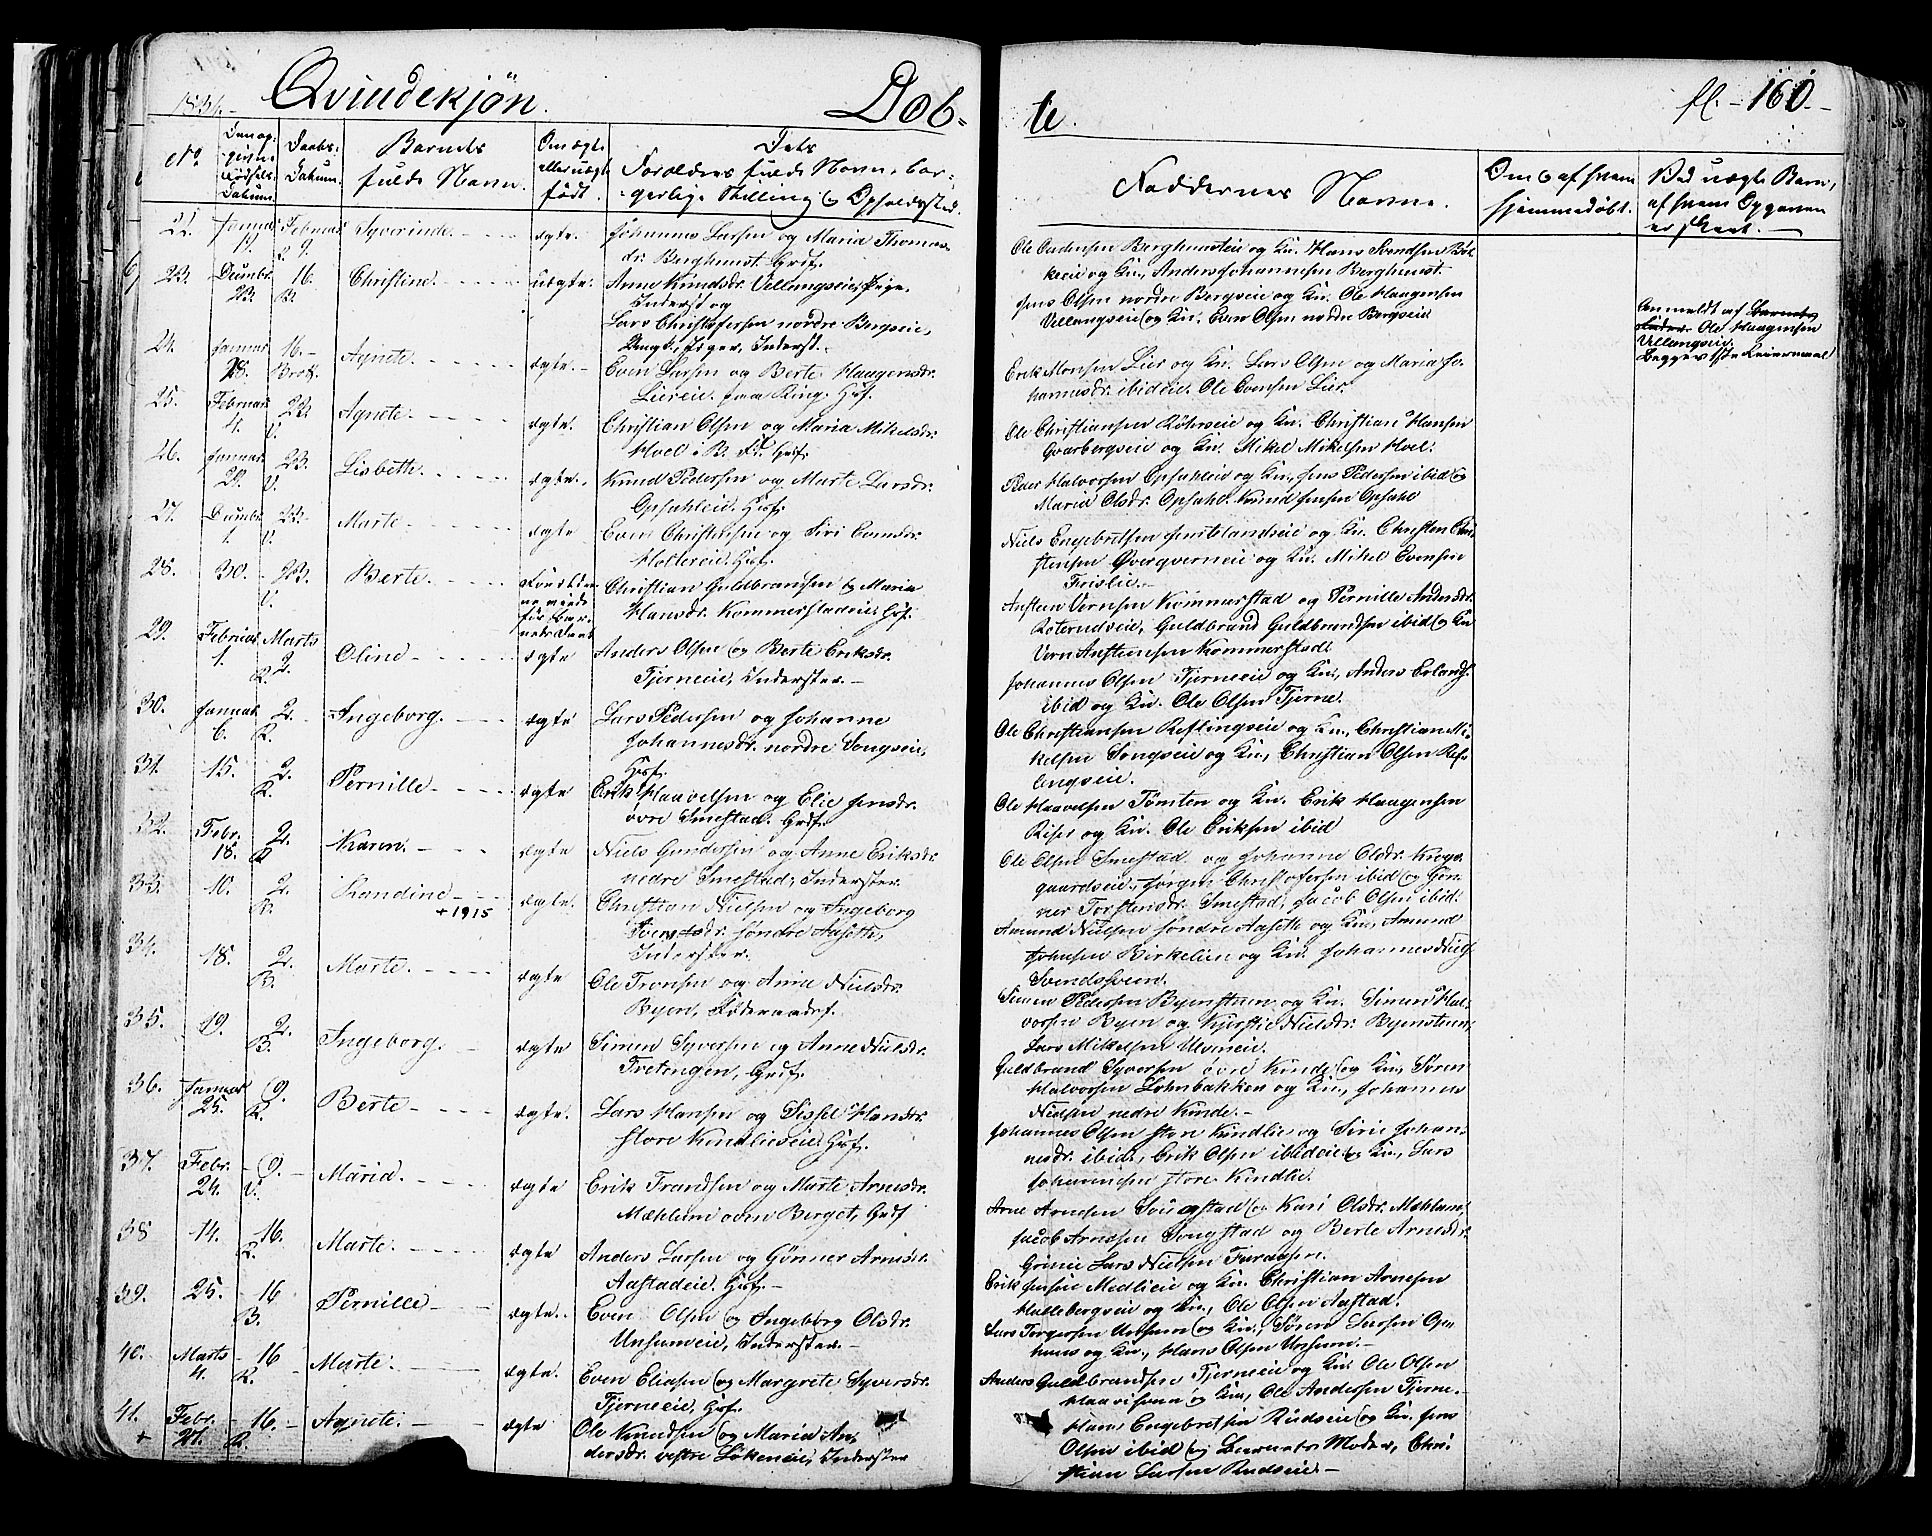 1834.
Qvindekjön.
Döb-
te.
fl. 160.
No.
Den op-
givne
Fødsels-
Datum.
Daabs-
Datum.
Barnets
fulde Navn.
Om ægte
eller uægte
født.
Dets
Forældres fulde Navn, bor-
gerlige Stilling og Opholdssted.
Faddernes Navne.
Om & af hvem
hjemmedøbt.
Ved uægte Barn,
af hvem Opgaven
er skeet.
22. Januar Februar 9. Syverine. ægte. Johannes Larsen og Maria Thomas-
dr. Berghuust. Grdf.
Ole Berghuuseie og Kn. Hans Svendsen
og Kn., Anders Johannesen Berghuust.
23. Decembr. 28. 16. Christine. uægte. Anne Knudsdr. Vellangseie, Pige,
Inderst og
Lars Christofersen nordre Bergseie,
Ungk., Inderst.
Jens Olsen nordre Bergseie og Kn. Ole Haagensen
Vellangseie og Kn. Even Olsen nordre Bergseie
Anmeldt af Barnets
Fader. Ole Haagensen
Vellangseie.
Begges 1ste Leiermaal
24. Januar 28. 16. Agnete. ægte. Even Larsen og Berte Haagensdr.
Liereie paa Ring. Hsf.
Erik Monsen Lier og Kn. Lars Olsen og Maria Jo-
hannesdr. ibid eie. Ole Evensen Lier.
25. Februar 4. 23. V. Agnete. ægte. Christian Olsen og Maria Mikelsdr.
Hoel i B. Fd. Grdf.
Ole Christiansen og Kn. Christian Hansen
og Kn. Mikel Mikelsen Hoel.
26. Januar 29. 23. V. Lisbette. ægte. Knud Pedersen og Marte Larsdr.
Opsahleie. Hsf.
Peder Halvorsen Opsahleie og Kn., Jens Pedersen ibid og
Maria Olsdr. Opsahl. Knud Jensen Opsahl
27. Decembr. 1. 23. V. Marte. ægte Even Christensen og Siri Evensdr.
Holtereie. Hsf.
Niels Engebretsen og Kn. Christen Chri-
stensen og Kn. Mikel Evensen
28. 30. 23. V. Berte. Forældre-
ne viede
før Bar-
nets Daab
Christian Guldbransen og Maria
Hansdr. Kommerstadeie, Hsf.
Austen Vernsen Kommerstad og Pernille Andersdr.
Roterudeie, Guldbrand Guldbrandsen ibid og Kn
Vern Austensen Kommerstad.
29. Februar 1. Marts 2. R. Oline ægte Anders Olsen og Berte Eriksdr.
Tjerneie, Inderster.
Johannes Olsen Tjerneeie og Kn., Anders Erlands.
ibid og Kn. Ole Olsen Tjerne.
30. Januar 6. 2. R. Ingeborg. ægte Lars Pedersen og Johanne
Johannesdr. nordre Songseie,
Hsf.
Ole Christiansen Reflingseie og Kn., Christian Mi-
kelsen Songseie og Kn., Christian Olsen Ref-
lingseie.
31. 15. 2. R. Pernille ægte Erik Haavelsen og Elie Jensdr.
övre Smestad. Grdf.
Ole Haavelsen Tömten og Kn. Erik Haagensen
Riser og Kn. Ole Eriksen ibid
32. Febr. 18. 2. R Karen. ægte Niels Gundersen og Anne Eriksdr.
nedre Smestad, Inderster.
Ole Olsen Smestad og Johanne Olsdr. Krogs-
gaardseie, Jørgen Christofersen ibid og Gön-
ner Torstensdr. Smestad, Jacob Olsen ibid.
33. 10. 2. R. Randine +1915 ægte. Christian Nielsen og Ingeborg
Iversdr. søndre Aasette,
Inderster.
Amund Nielsen søndre Aasette og Kn., Amund
Johnsen Birkelien og Kn. Johannes Niels.
Svendssveen.
34. 18. 2. B. Marte. ægte Ole Tronsen og Anne Nielsdr.
Byen, Föderaadsf.
Simen Pedersen Byenstuen og Kn. Simen Hal-
vorsen Byen og Kjerstie Nielsdr. Byenstuen,
Lars Mikelsen Ulveneie.
35. 19. 2. B. Ingeborg. ægte Simen Syversen og Anne Nielsdr.
Fretengen, Grdf.
Guldbrand Syversen övre Kinde og Kn., Sören
Halvorsen Lohnbakken og Kn., Johannes
Nielsen nedre Kinde.
36. Januar 25. 9. R. Berte ægte. Lars Hansen og Sissel Hansdr.
store Kindlieeie. Hsf.
Johannes Olsen store Kindlie og Sirie Johan-
nesdr. ibid., Erik Olsen ibid eie og Kn., Lars
Johannesen store Kindlie.
37. Febr. 24. 9. V. Maria. ægte Erik Trandsen og Marte Arnesdr.
Mæhlum oven Berget, Grdf
Arne Arnesen Songstad og Kari Olsdr. Mæhlum,
Jacob Arnesen Songstad og Berte Arnesdr.
Grinie Lars Nielsen Furaasen.
38 14. 16. R. Marte. ægte Anders Larsen og Gönner Arnesdr.
Aastadeie. Hsf.
Erik Jensen Medlieeie og Kn. Christian Arnesen
Hallebergseie og Kn., Ole Olsen Aastad.
39. 25. 16 B. Pernille ægte. Even Olsen og Ingeborg Olsdr.
Unsumeie, Inderster.
Lars Torgersen Unsum og Kn., Sören Larsen Op-
huus og Kn., Hans Olsen Unsum.
40. Marts 4. 16 R. Marte. ægte. Even Eliasen og Margrete Syversdr.
Tjerneeie, Hsf.
Anders Guldbrandsen Tjerneeie og Kn. Ole Olsen
og Kn., Ole Andersen Tjerne.
41. Febr. 27. 16. R. Agnete. ægte Ole Knudsen og Maria An-
dersdr. vestre Lökeneie, Inderster
Hans Engebretsen Rudseie og Kn. Jens
Olsen ibid og Barnets Moder, Chri-
stian Larsen Rudseie